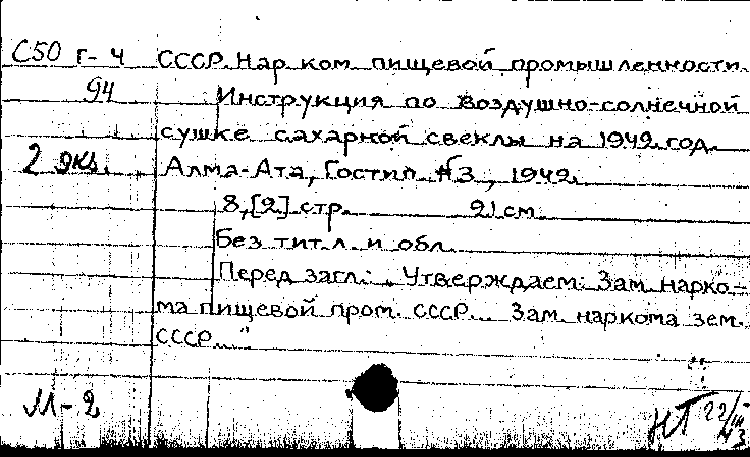 С50 г-4 СССР. Нар. ком. пищевой промышленности.
94 Инструкция по воздушно-солнечной
сушке сахарной свеклы на 1942 год.
2 экз. Алма-Ата, Гостип. №3, 1942.
8,[2] стр. 21 см.
Без тит. л. и обл.
Перед загл.: "Утверждаем: Зам. нарко-
ма пищевой пром. СССР... Зам. наркома зем.
СССР..."
М-2
НТ 22/III 43